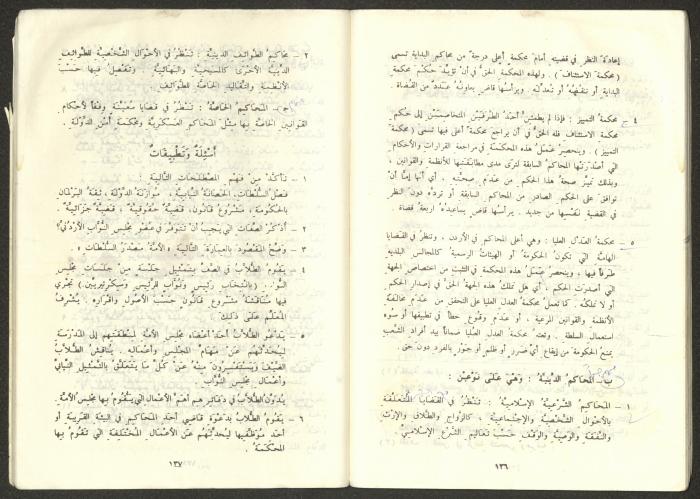 إعادة النظر في قضيته أمام محكمة أعلى درجة من محاكم البداية تسمى
( محكمة الاستئناف ) . ولهذه المحكمة الحق في أن تؤيد حكم محكمة
البداية أو تنقضه أو تعدله . ويرأسها قاض يعاونه عدد من القضاة .
٤ ـ محكمة التمييز : فإذا لم يطمئن أحد الطرفين المتخاصمين إلى حكم
محكمة الاستئناف فله الحق في أن يراجع محكمة أعلى فيها تسمى ( محكمة
التمييز ) . وينحصر عمل هذه المحكمة في مراجعة القرارات والأحكام
التي أصدرتها المحاكم السابقة لترى مدى مطابقتها للأنظمة والقوانين ،
وبذلك تميز صحة هذا الحكم من عدم صحته . أي أنها إما أن
توافق على الحكم الصادر من المحاكم السابقة أو ترده دون النظر
في القضية نفسها من جديد . يرأسها قاض يساعده أربعة قضاة .
٥ ـ محكمة العدل العليا : وهي أعلى المحاكم في الأردن ، وتنظر في القضايا
الهامة التي تكون الحكومة أو الهيئات الرسمية كالمجالس البلدية
طرفاً فيها ، وينحصر عمل هذه المحكمة في التثبت من اختصاص الجهة
التي أصدرت الحكم ، أي هل تملك هذه الجهة الحق في إصدار الحكم
أو لا تملكه . كما تعمل محكمة العدل العليا على التحقق من عدم مخالفة
الأنظمة والقوانين المرعية ، أو عدم وقوع خطأ في تطبيقها أو سوء
استعمال السلطة . وتعتبر محكمة العدل العليا ضماناً بيد أفراد الشعب
يمنع الحكومة من إيقاع أي ضرر أو ظلم أو جور بالفرد دون حق .
ب ـ المحاكم الدينية : وهي على نوعين :
١ ـ المحاكم الشرعية الإسلامية : تنظر في القضايا المتعلقة
بالأحوال الشخصية والاجتماعية ، كالزواج والطلاق والإرث
والنفقة والوصية والوقف حسب تعاليم الشرع الإسلامي .
١٣٦
٢ ـ محاكم الطوائف الدينية : تنظر في الأحوال الشخصية للطوائف
الدينية الأخرى كالمسيحية والبهائية . وتفصل فيها حسب
الأنظمة والتقاليد الخاصة للطوائف .
جـ ـ المحاكم الخاصة : تنظر في قضايا معينة وفقاً لأحكام
القوانين الخاصة بها مثل المحاكم العسكرية ومحكمة أمن الدولة .
أسئلة وتطبيقات
١ ـ تأكد من فهم المصطلحات التالية :
فصل السلطات ، الحصانة النيابية ، موازنة الدولة ، ثقة البرلمان
بالحكومة ، مشروع قانون ، قضية حقوقية ، قضية جزائية .
٢ ـ أذكر الصفات التي يجب أن تتوفر في عضو مجلس النواب الأردني ؟
٣ ـ وضح المقصود بالعبارة التالية « الأمة مصدر السلطات » .
٤ ـ يقوم الطلاب في الصف بتمثيل جلسة من جلسات مجلس
النواب .. ( بانتخاب رئيس ونواب الرئيس وسكرتيريين ) تجري
فيها مناقشة مشروع قانون حسب الأصول وإقراره . يشرف
المعلم على ذلك .
٥ ـ يدعو الطلاب أحد أعضاء مجلس الأمة لمنطقتهم إلى المدرسة
ليحدثهم عن مهام المجلس وأعماله . يناقش الطلاب
الضيف ويستفسرون منه عن كل ما يتعلق بالتمثيل النيابي
وأعمال مجلس النواب .
يدون الطلاب في دفاترهم أهم الأعمال التي يقوم بها مجلس الأمة .
٦ ـ يقوم الطلاب بدعوة قاضي أحد المحاكم في البيئة القريبة أو
أحد موظفيها ليحدثهم عن الأعمال المختلفة التي تقوم بها
المحكمة .
١٣٧